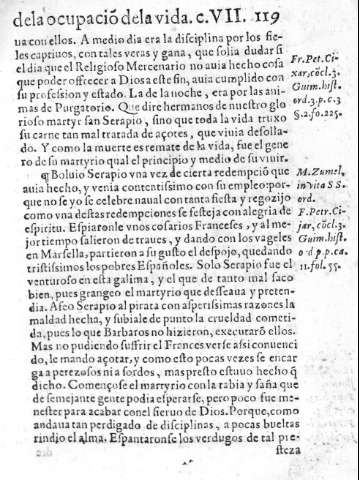 dela ocupació dela vida. c. VII. 119
ua con ellos. A medio dia era la disciplina por los fie-
les captiuos, con tales veras y gana, que solia dudar si
el dia que el Religioso Mercenario no auia hecho cosa
que poder offrecer a Dios a este fin, auia cumplido con
su profession y estado. La de la noche, era por las ani-
mas de Purgatorio. Que dire hermanos de nuestro glo
rioso martyr san Serapio, sino que toda la vida truxo
su carne tan mal tratada de açotes, que viuia desolla-
do. Y como la muerte es remate de la vida, fue el gene
ro de su martyrio qual el principio y medio de su viuir.
¶ Boluio Serapio vna vez de cierta redempció que
auia hecho, y venia contentissimo con su empleo: por-
que no se yo se celebre naual con tanta fiesta y regozijo
como vna destas redempciones se festeja con alegria de
espiritu. Espiaronle vnos cosarios Franceses, y al me-
jor tiempo salieron de traues, y dando con los vageles
en Marsella, partieron a su gusto el despojo, quedando
tristissimos los pobres Españoles. Solo Serapio fue el
venturoso en esta galima, y el que de tanto mal saco
bien, pues grangeo el martyrio que desseaua y preten-
dia. Afeo Serapio al pirata con asperissimas razones la
maldad hecha, y subiale de punto la crueldad cometi-
da, pues lo que Barbaros no hizieron, executarō ellos.
Mas no pudiendo suffrir el Frances verse assi conuenci
do, le mando açotar, y como esto pocas vezes se encar
ga a perezosos ni a sordos, mas presto estuuo hecho q̄
dicho. Començose el martyrio con la rabia y saña que
de semejante gente podia esperarse, pero poco fue me-
nester para acabar con el sieruo de Dios. Porque, como
andaua tan perdigado de disciplinas, a pocas bueltas
rindio el alma. Espantaronse los verdugos de tal pre-
steza
Fr. Pet. Ci-
xar, cōcl. 3.
Guim. hist.
ord. 3. p. c. 3
§. 2. fo. 225.
M. Zumel,
in vita S S.
ord.
F. Petr. Ci-
jar, cōcl. 3.
Guim. hist.
o d. p. p. ca.
11. fol. 55.